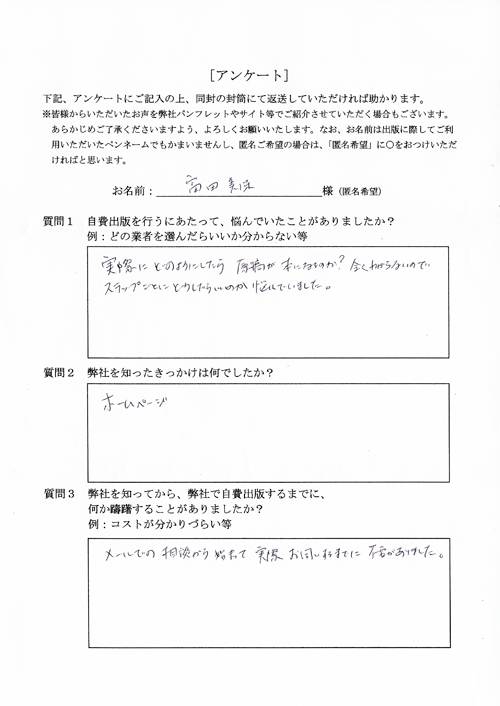 [アンケート]
下記、アンケートにご記入の上、同封の封筒にて返送していただければ助かります。
※皆様からいただいたお声を弊社パンフレットやサイト等でご紹介させていただく場合もございます。
あらかじめご了承くださいますよう、よろしくお願いいたします。なお、お名前は出版に際してご利
用いただいたペンネームでもかまいませんし、匿名ご希望の場合は、「匿名希望」に〇をおつけいただ
ければと思います。
お名前：富田 様（匿名希望）
質問１ 自費出版を行うにあたって、悩んでいたことがありましたか？
例：どの業者を選んだらいいか分からない等
実際にどのようにしたら 原稿が本になるのか？全くわからないので
ステップごとにどうしたらいいのか 悩んでいました。
質問２ 弊社を知ったきっかけは何でしたか？
ホームページ
質問３ 弊社を知ってから、弊社で自費出版するまでに、
何か躊躇することがありましたか？
例：コストが分かりづらい等
メールでの相談から始まって 実際お伺いするまでに 不安がありました。